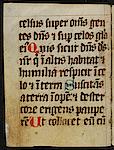 celsus super om̄s gen
tes dn̄s et sup celos glia
ei Quis sicut dn̄s ds
nr̄ qui in altis habitat et
humilia respicit in ce
lo et in terra Suscitās
a terra inopē et de ster
core erigens paupe
rē Ut collocet eū cū